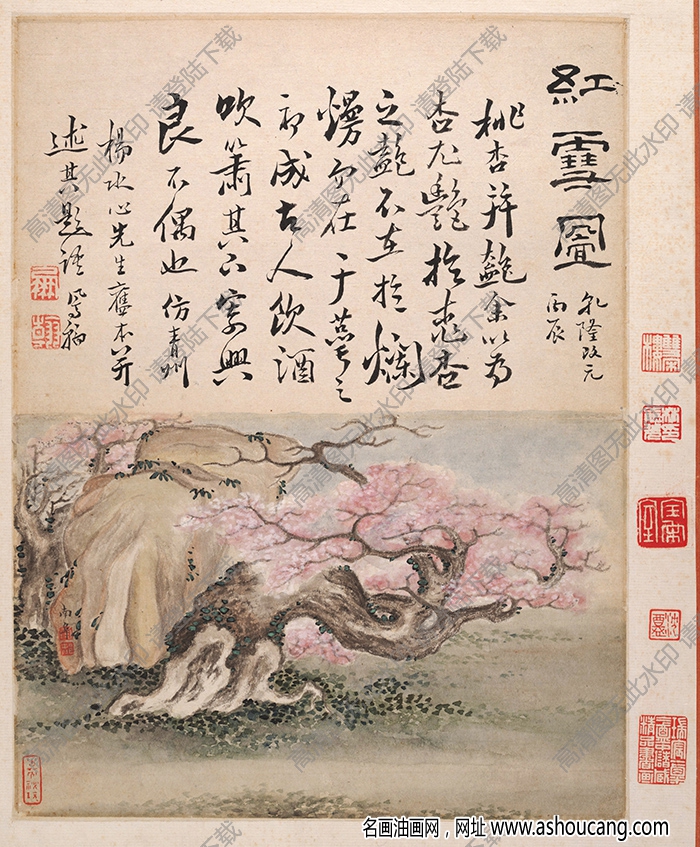 紅雪圖
乾隆改元
丙辰
桃杏并艷余以为
杏尤艷於桃杏
之艷不在於爛
熳而在于之
初成古人飲酒
吹簫其下寄興
良不偶也仿青州
楊水心先生舊本并
述其題語 鳳翰
高清图无此水印 请登陆下载
名画油画网，网址 www.ashoucang.com